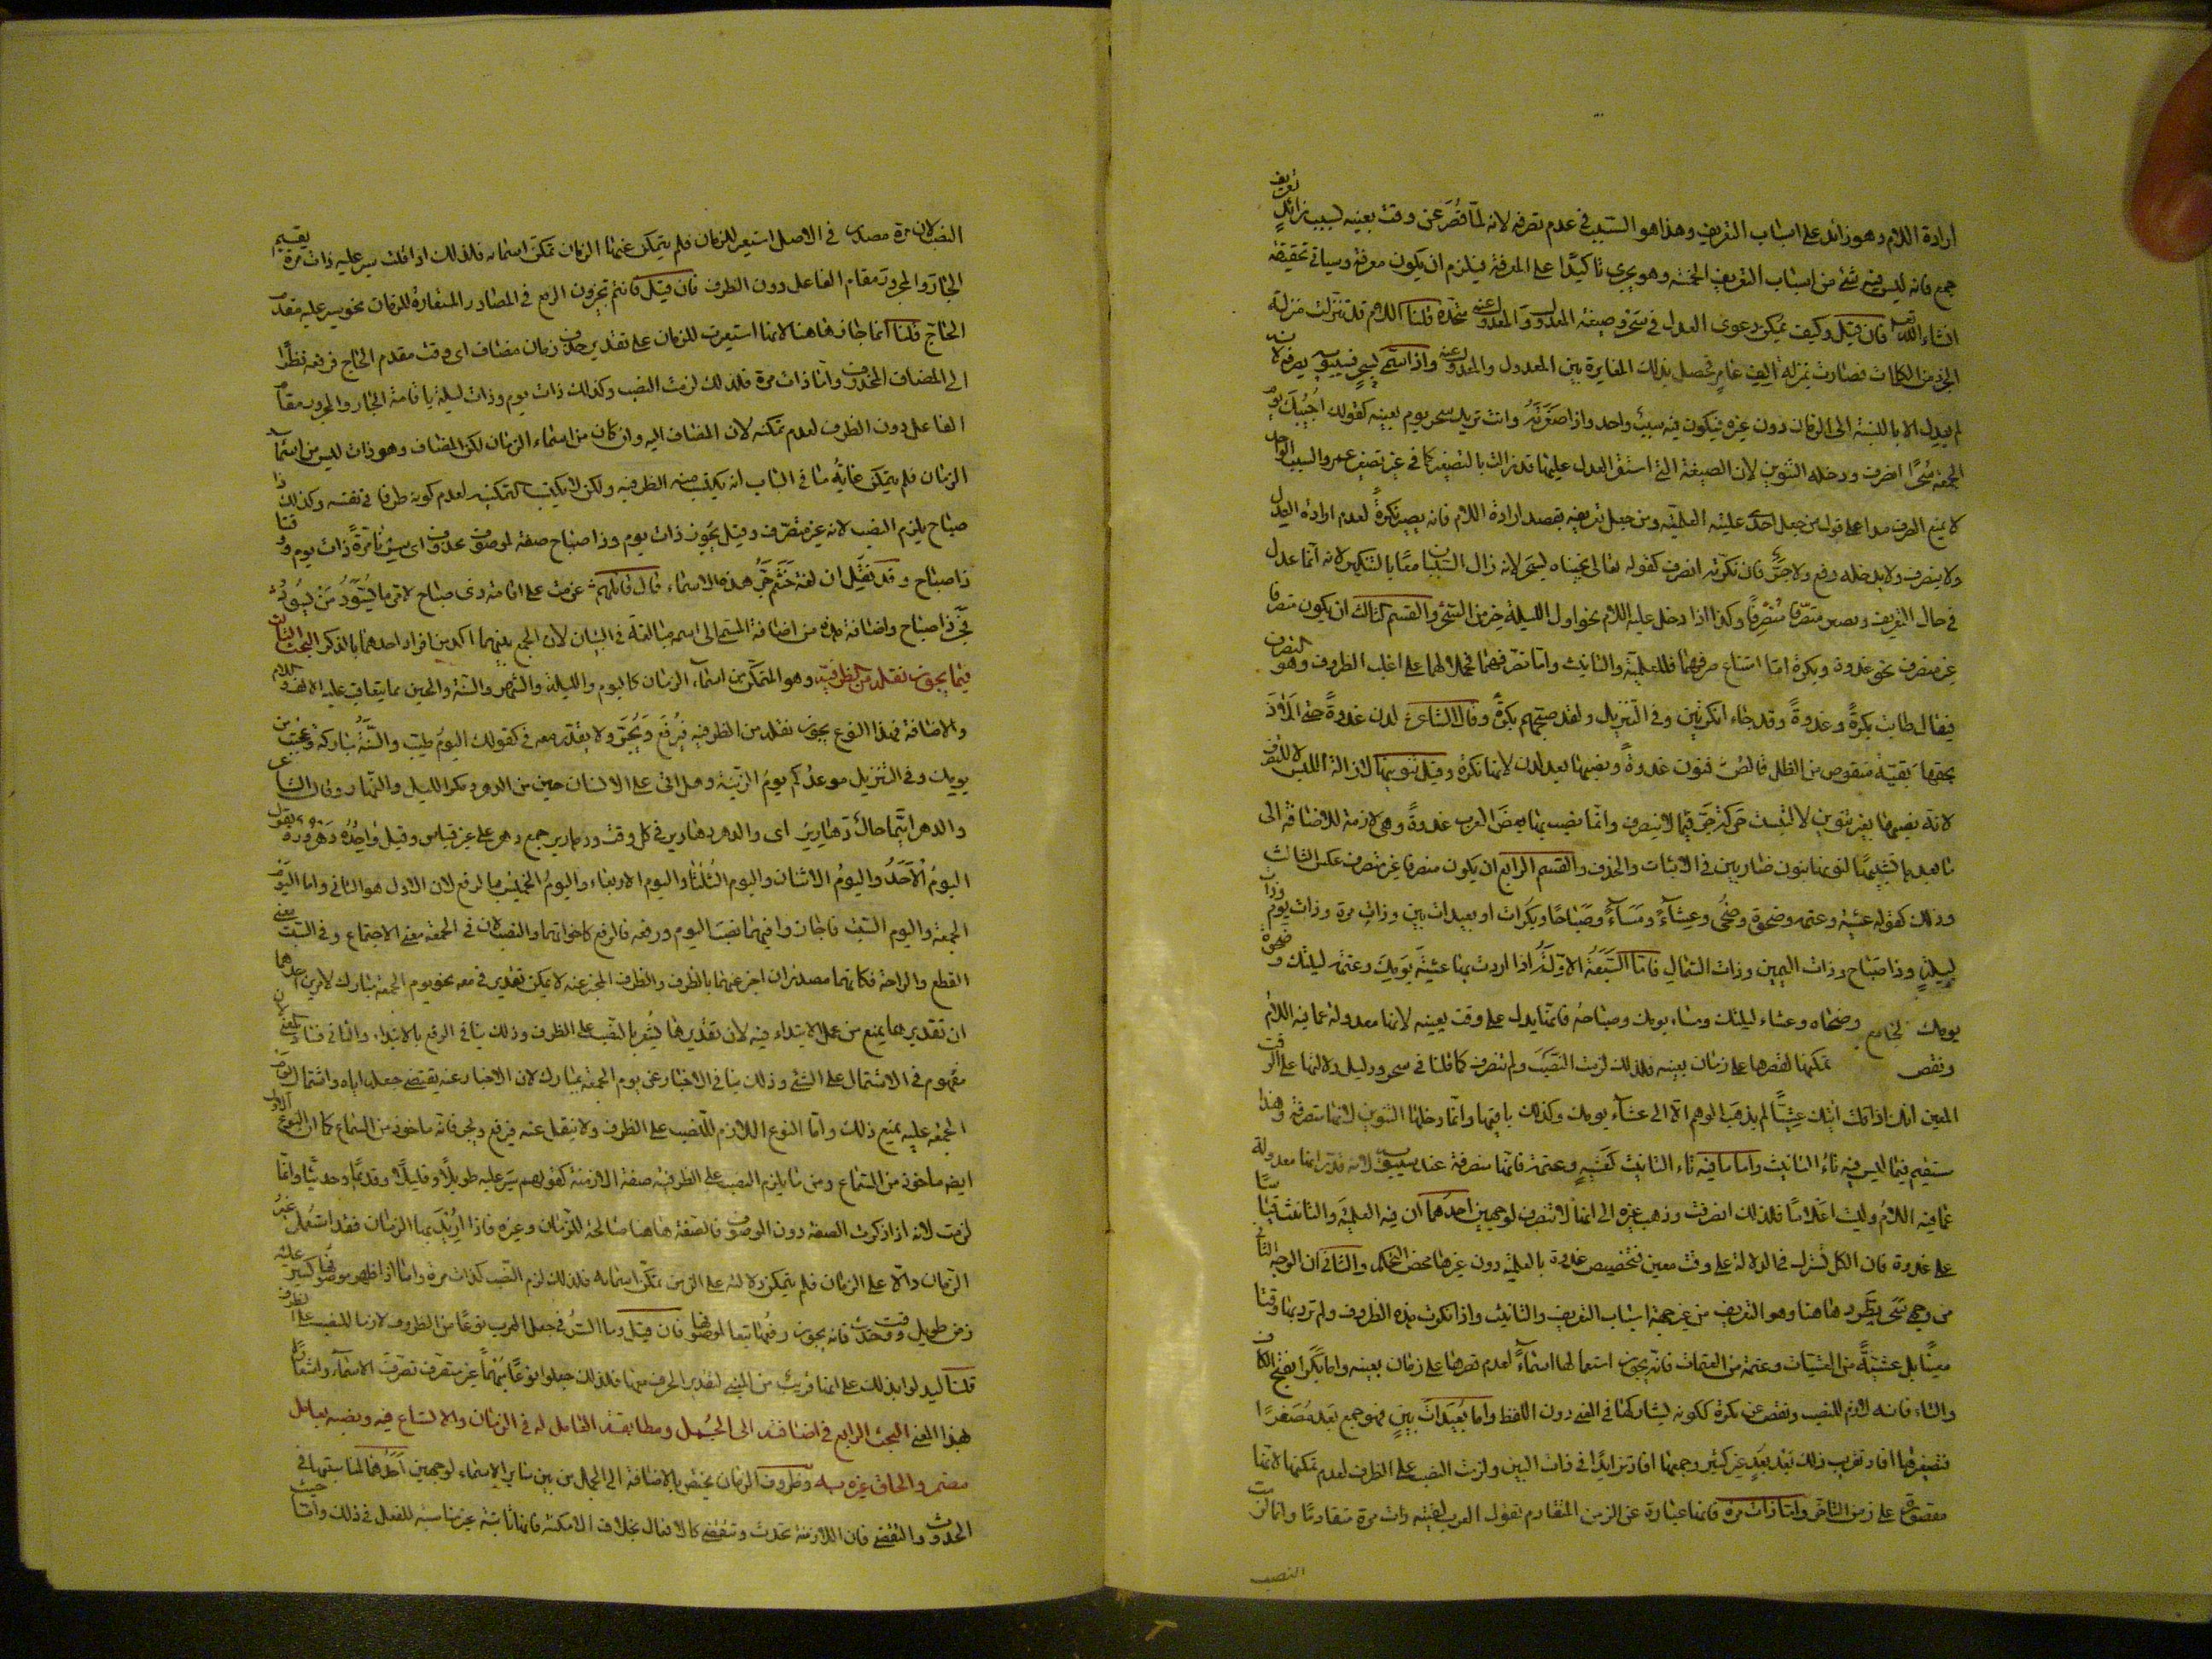 ارادة اللام وهو زائد على اسباب التعريف وهذا هو السبب في عدم تصرفه لانه لما قصر عن وقت بعينه لسبب زائد تعريف
جمع فانه ليس فيه شئ من اسباب التعريف الخمسة وهو يجري تاكيدا على المعرفة فيلزم ان يكون معرفة وسياتي تحقيقه
انشاء الله تعالى فان قيل وكيف يمكن دعوى العدل في سحر وصيغة المعدول والمعدول عنه متحدة قلنا اللام قد تنزلت منزلة
الجزء من الكلمات فصارت بمنزلة الف عامر فحصل بذلك المغايرة بين المعدول والمعدول عنه واذا سمي بسحر فسيبويه يصرفه لانه
لم يعدل الا بالنسبة الى الزمان دون غيره فيكون فيه سبب واحد واذا صغرته وانت تريد سحر يوم بعينه كقولك اجيئك يوم
الجمعة سحيرا انصرف ودخله التنوين لان الصيغة التي استقر العدل عليها قد زالت بالتصغير كما في تصغير عمر والسبب الواحد
لا يمنع الصرف هذا على قول من جعل احدى علتيه العلمية ومن جعل تعريفه بقصد ارادة اللام فانه يصير نكرة لعدم ارادة العدل
ولا ينصرف ولا يدخله رفع ولا جر فان نكرته انصرف كقوله تعالى نجيناهم بسحر لانه زال السببان معا بالتنكير لانه انما عدل
في حال التعريف ويصير متصرفا منصرفا وكذا اذا دخل عليه اللام نحو اول الليلة خير من السحر والقسم الثالث ان يكون متصرفا
غير منصرف نحو غدوة وبكرة اما امتناع صرفهما فللعلمية والتانيث واما تصرفهما فحملا لهما على اغلب الظروف وهو التصرف
فيقال طابت بكرة وغدوة وقد جاءا نكرتين وفي التنزيل ولقد صبحهم بكرة وقال الشاعر لدن غدوة حتى الاذ
بخفها بقية منقوص من الظل قالص فنون غدوة ونصبها بعد لدن لانها نكرة وقيل تنوينها لازالة اللبس لا للصرف
لانه نصبها بغير تنوين لالتبست حركة جر فيما لا ينصرف وانما نصب بها بعض العرب غدوة وهي لازمة للاضافة الى
ما بعدها تشبيها لنونها بنون ضاربين في الاثبات والحذف والقسم الرابع ان يكون منصرفا غير متصرف عكس الثالث
وذلك كقوله عشية وعتمة وضحوة وضحى وعشاء ومساء وصباحا وبكرات او بعيدات بين وذات مرة وذات يوم وذات
ليلة وذا صباح وذات اليمين وذات الشمال فاما السبعة الاولة اذا اردت بها عشية يومك وعتمة ليلتك وضحوة
يومك وضحاه وعشاء ليلتك ومساء يومك وصباحه فانما يدل على وقت بعينه لانها معدولة عما فيه اللام
ونقص تمكنها لقصرها على زمان بعينه فلذلك لزمت النصب ولم تتصرف كما قلنا في سحر ودليل دلالتها على الوقت
المعين انك اذا قلت اتيتك عشاء لم يذهب الوهم الا الى عشاء يومك وكذلك باقيها وانما دخلها التنوين لانها منصرفة وهذا
مستقيم فيما ليس فيه تاء التانيث واما ما فيه تاء التانيث كعشية وعتمة فانها منصرفة عند سيبويه لانه قدر انها معدولة
عما فيه اللام وليست اعلاما فلذلك انصرفت وذهب غيره الى انها لا تنصرف لوجهين احدهما ان فيه العلمية والتانيث قياسا
على غدوة فان الكل مشترك في الدلالة على وقت معين فتخصيص غدوة بالعلمية دون غيرها محض التحكم والثاني ان الوجه الثاني
من وجهي سحر يطرد هاهنا وهو التعريف من غير جهة اسباب التعريف والتانيث واذا نكرت هذه الظروف ولم ترد بها وقتا
معينا بل عشية من العشيات وعتمة من العتمات فانه يجوز استعمالها اسماء لعدم قصرها على زمان بعينه واما بكرا بفتح الكاف
والتاء فانه لازم للنصب ونقص عن بكرة لكونه يشاركها في المعنى دون اللفظ واما بعيدات بين فهو جمع بعد مصغرا
فتصغيرها افاد تقريب ذلك بعد بعد غير كثير وجمعها افاد تزايدا في ذات البين ولزمت النصب على الظرف لعدم تمكنها لانها
مقصورة على زمن التاخر واما ذات مرة فانها عبارة عن الزمن المتقادم تقول العرب لقيته ذات مرة متقادما وانما لزمت
النصب
النصب لان مرة مصدر في الاصل استعير للزمان فلم يتمكن عنها الزمان تمكن اسمائه فلذلك اذا قلت سير عليه ذات مرة يقيم
الجار والمجرور مقام الفاعل دون الظرف فان قيل فانتم تجيزون الرفع في المصادر المستعارة للزمان نحو سير عليه مقدم
الحاج قلنا انما جاز هاهنا لانها استعيرت للزمان على تقدير حذف زمان مضاف اي وقت مقدم الحاج فرفعه نظرا
الى المضاف المحذوف واما ذات مرة فلذلك لزمت النصب وكذلك ذات يوم وذات ليلة باقامة الجار والمجرور مقام
الفاعل دون الظرف لعدم تمكنه لان المضاف اليه وان كان من اسماء الزمان لكن المضاف وهو ذات ليس من اسماء
الزمان فلم يتمكن غاية ما في الباب انه يكتسب منه الظرفية ولكن لا يكتسب تمكنه لعدم كونه ظرفا في نفسه وكذلك ذا
صباح يلزم النصب لانه غير متصرف وقيل يجوز ذات يوم وذا صباح صفة لموصوف محذوف اي سيرتا مرة ذات يوم ووقتا
ذا صباح وقد نقل ان لغة خثعم جر هذه الاسماء قال قائلهم عزمت على اقامة ذي صباح لامر ما يسود من يسود
فجر ذا صباح واضافة هذه من اضافة المسمى الى اسمه مبالغة في البيان لان الجمع بينهما اكد من افراد احدهما بالذكر البحث الثالث
فيما يجوز نقله من الظرفية وهو المتمكن من اسماء الزمان كاليوم والليلة والشهر والسنة والحين مما يتعاقب عليه الالف واللام
والاضافة فهذا النوع يجوز نقله من الظرفية فيرفع ويجر ولا يقدر معه في كقولك اليوم طيب والسنة مباركة وعجبت من
يومك وفي التنزيل موعدكم يوم الزينة وهل اتى على الانسان حين من الدهر ومكر الليل والنهار وقال الشاعر
والدهر ايتما حال دهارير اي والدهر دهارير في كل وقت ودهارير جمع دهر على غير قياس وقيل واحده دهرورة وتقول
اليوم الاحد واليوم الاثنان واليوم الثلثاء واليوم الاربعاء واليوم الخميس بالرفع لان الاول هو الثاني واما اليوم
الجمعة واليوم السبت فاجازوا فيهما نصب اليوم ورفعه فالرفع كاخواتهما والنصب لان في الجمعة معنى الاجتماع وفي السبت معنى
القطع والراحة فكانهما مصدران اخبر عنهما بالظرف والظرف المخبر عنه لا يمكن تقدير في معه نحو يوم الجمعة مبارك لامرين احدهما
ان تقديرها يمنع من عمل الابتداء فيه لان تقديرها يشعر بالنصب على الظرف وذلك ينافي الرفع بالابتداء والثاني ان معنى في
مفهوم في الاشتمال على الشئ وذلك ينافي الاخبار عن يوم الجمعة بمبارك لان الاخبار عنه يقتضي جعله اياه واشتمال يوم
الجمعة عليه يمنع ذلك واما النوع اللازم للنصب على الظرف ولا ينقل عنه فيرفع ويجر فانه ماخوذ من السماع كما ان النوع الاول
ايضا ماخوذ من السماع ومن ما يلزم النصب على الظرفية صفة الازمنة كقولهم سير عليه طويلا وقليلا وقديما وحديثا وانما
لزمت لانه اذا ذكرت الصفة دون الموصوف فالصفة هاهنا صالحة للزمان وغيره فاذا اريد بها الزمان فقد استعمل غير
الزمان دالا على الزمان فلم يتمكن دلالته على الزمن تمكن اسمائه فلذلك لزم النصب كذات مرة واما اذا ظهر موصوفها كسير عليه
زمن طويل ووقت حديث فانه يجوز رفعها تبعا لموصوفها فان قيل وما السر في جعل العرب نوعا من الظروف لازما للنصب على الظرف
قلنا ليدلوا بذلك على انها قريبة من المبني لتقدير الحرف معها فلذلك جعلوا نوعا منها غير متصرف تصرف الاسماء واشعارا
لهذا المعنى البحث الرابع في اضافته الى الجمل ومطابقة الفاعل له في الزمان والاتساع فيه ونصبه بعامل
مضمر والحاق غيره به وظروف الزمان يختص بالاضافة الى الجمل من بين سائر الاسماء لوجهين احدهما لمناسبتها في
الحدوث والتقضي فان الازمنة تحدث وتنقضي كالافعال بخلاف الامكنة فانها ثابتة غير مناسبة للفعل في ذلك واما حيث